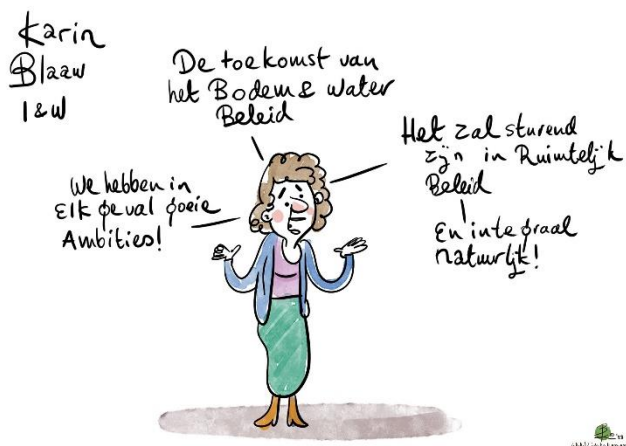 Karin
Blaaw
I&W
De toekomst van
het Bodem & water
Beleid
We hebben in
Elk geval goeie
Ambities!
Het zal sturend
zijn in Ruimtelijk
Beleid
En integraal
natuurlijk!